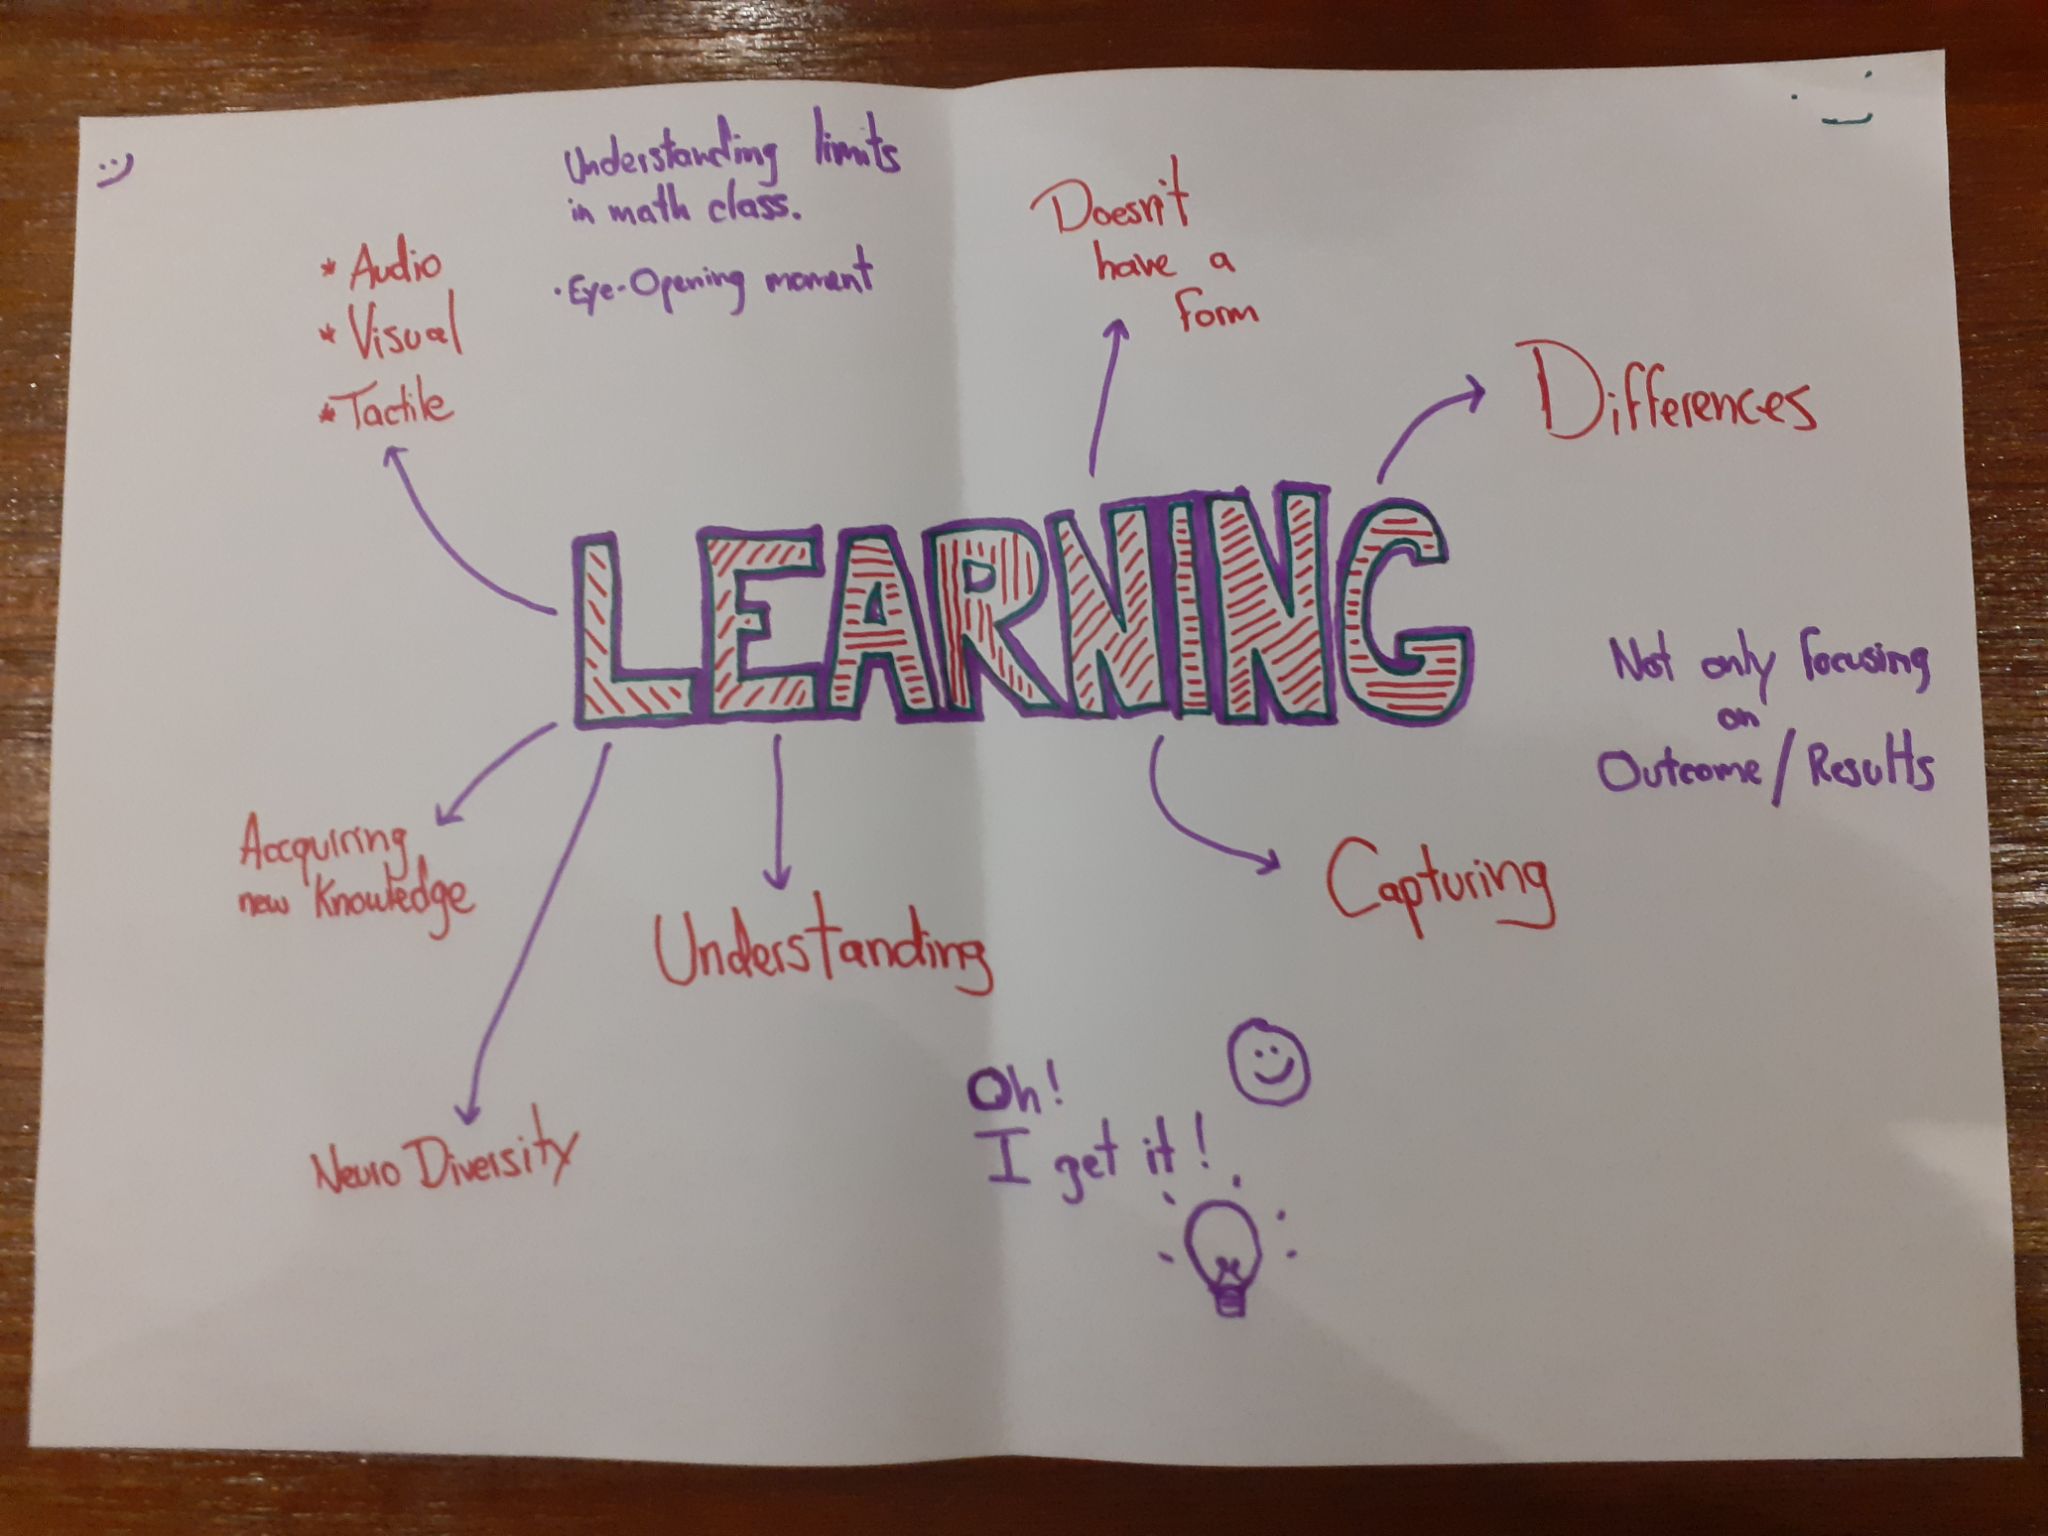 Understanding limits
in math class.
• Eye-Opening moment
* Audio
* Visual
* Tactile
Doesn't
have a
form
Differences
LEARNING
Not only focusing
on
Outcome / Results
Accquiring
new Knowledge
Understanding
Capturing
Neuro Diversity
Oh!
I get it!